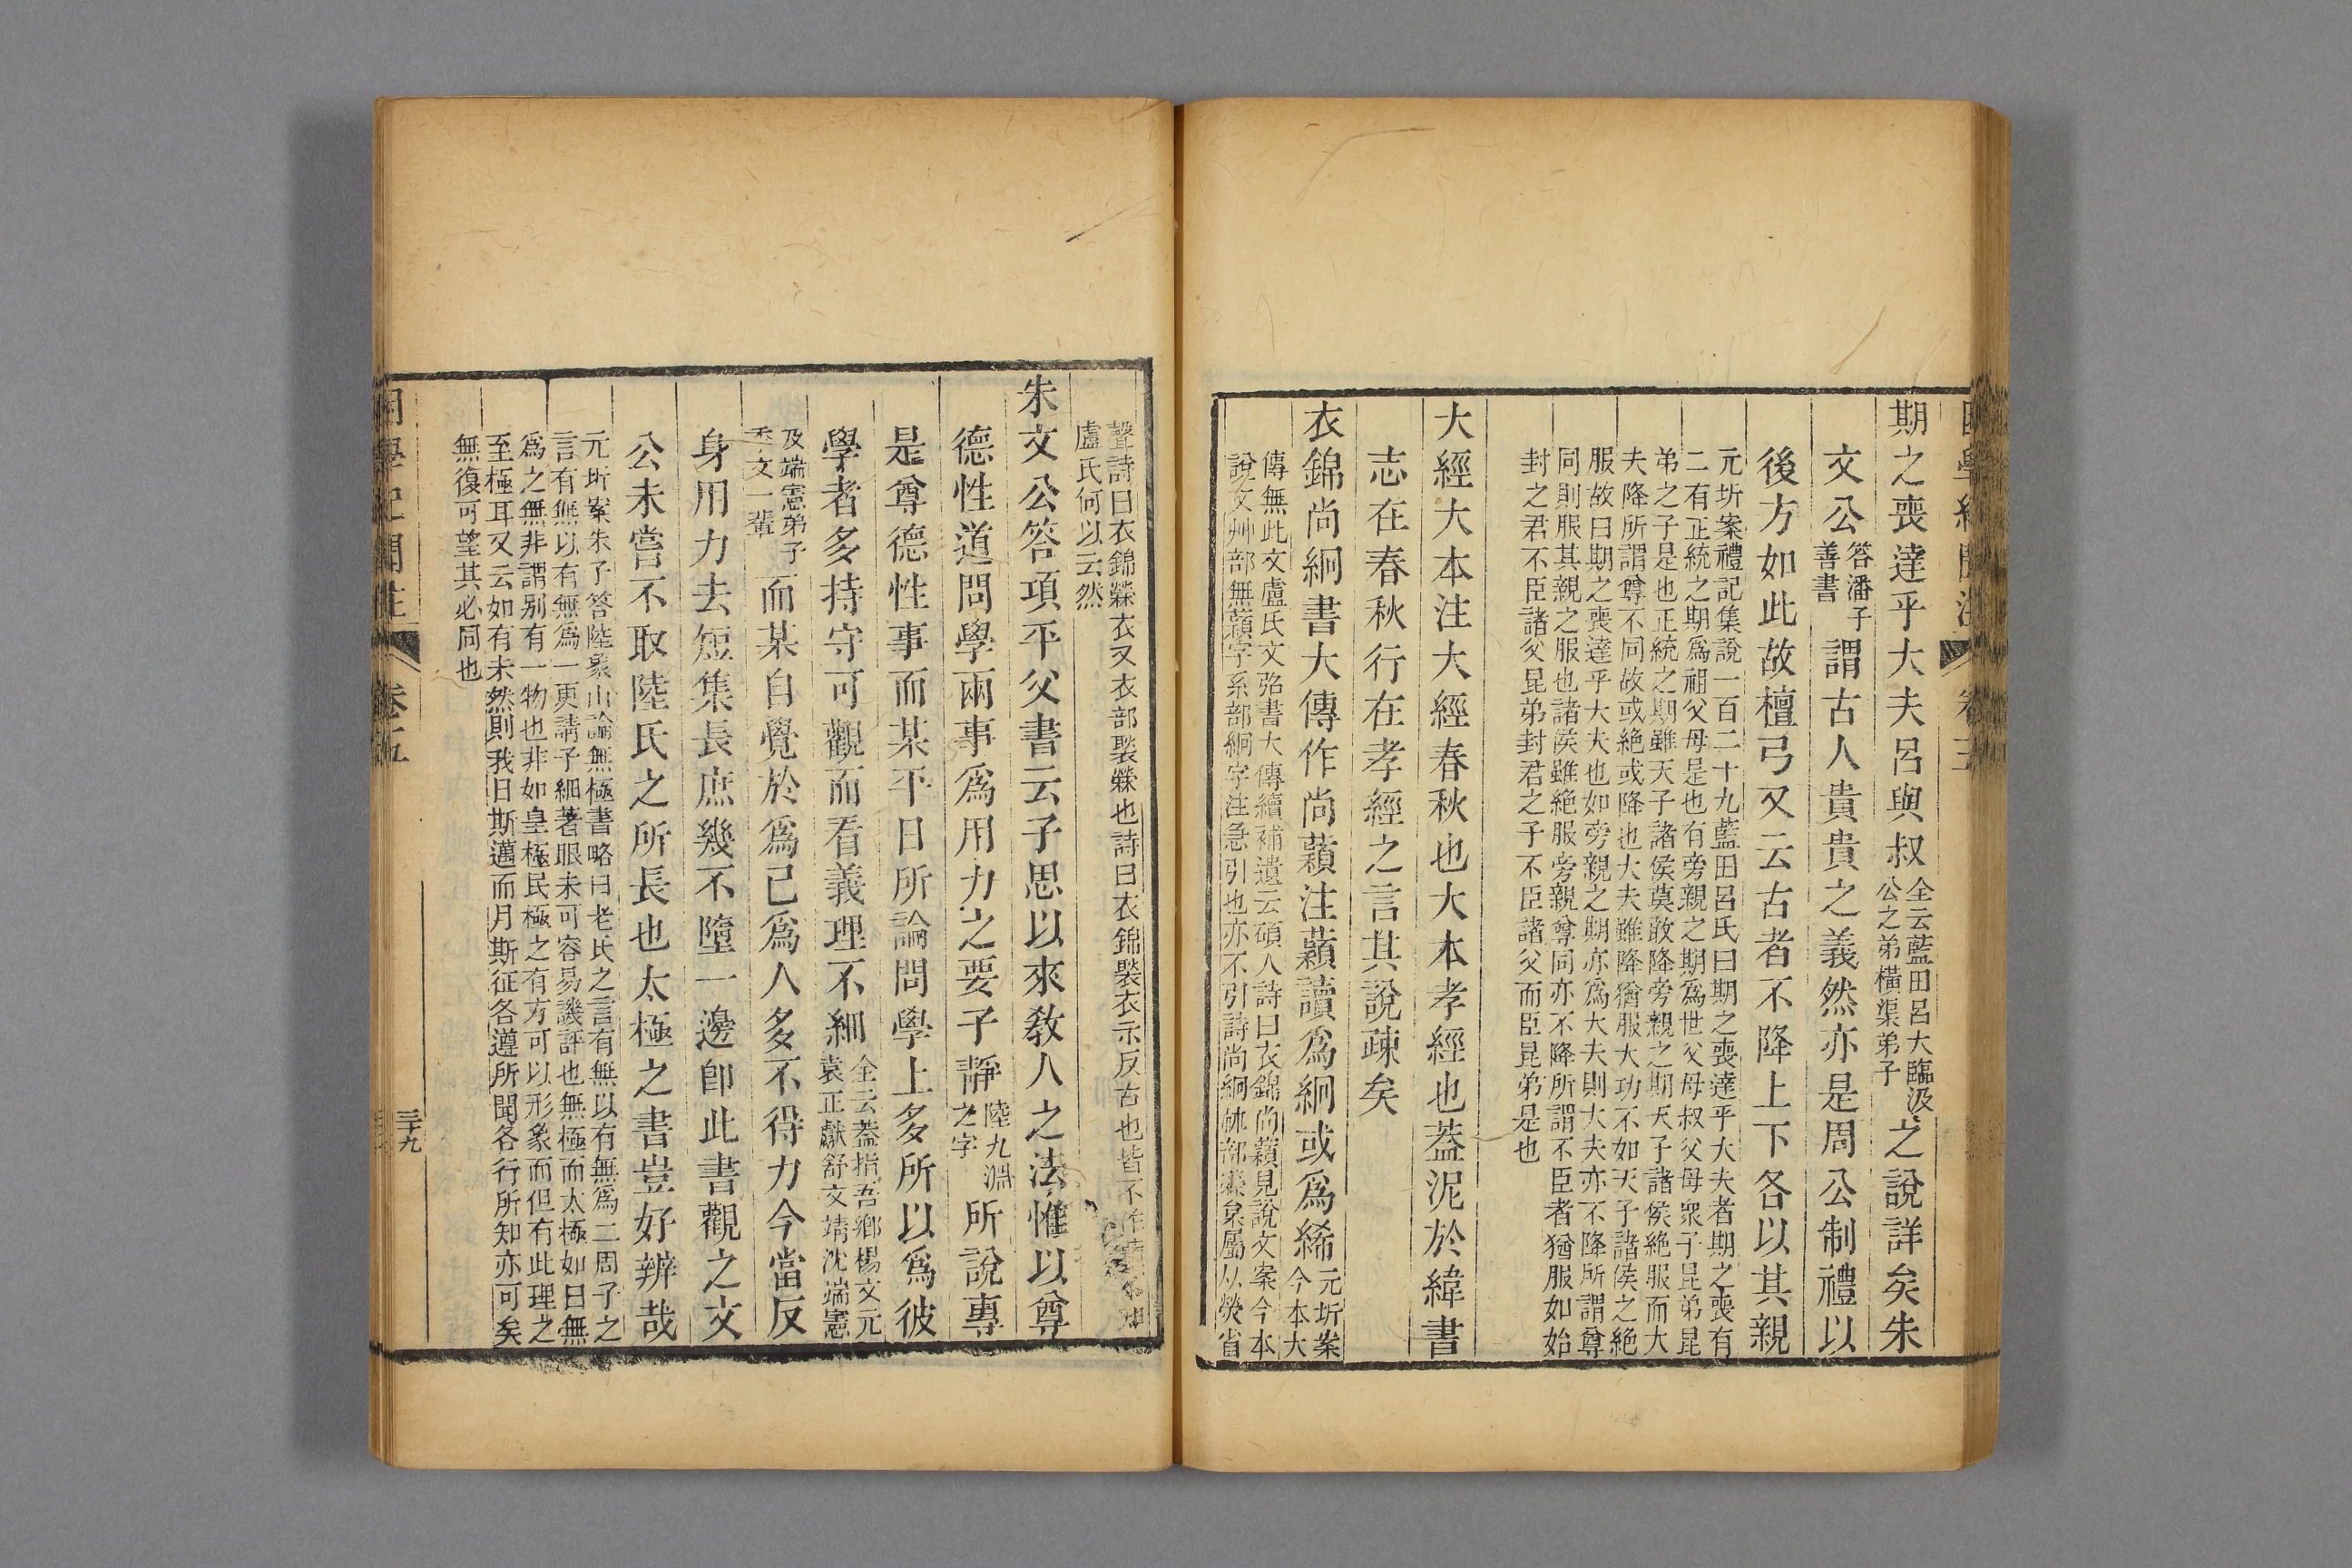 期之喪達乎大夫呂與叔全云藍田呂大臨汲公之弟橫渠弟子之說詳矣朱
文公答潘子善書謂古人貴貴之義然亦是周公制禮以
後方如此故檀弓又云古者不降上下各以其親
元圻案禮記集說一百二十九藍田呂氏曰期之喪達乎大夫者期之喪有
二有正統之期爲祖父母是也有旁親之期爲世父母叔父母衆子昆弟昆
弟之子是也正統之期雖天子諸侯莫敢降旁親之期天子諸侯絶服而大
夫降所謂尊不同故或絶或降也大夫雖降猶服大功不如天子諸侯之絶
服故曰期之喪達乎大夫也如旁親之期亦爲大夫則大夫亦不降所謂尊
同則服其親之服也諸侯雖絶服旁親尊同亦不降所謂不臣者猶服如始
封之君不臣諸父昆弟封君之子不臣諸父而臣昆弟是也
大經大本注大經春秋也大本孝經也蓋泥於緯書
志在春秋行在孝經之言其說疎矣
衣錦尚絅書大傳作尚蘔注蘔讀爲絅或爲絺元圻案今本大
傳無此文盧氏文弨書大傳續補遺云碩人詩曰衣錦尚蘔見說文案今本
說文艸部無蘔字系部絅字注急引也亦不引詩尚絅𣏟部檾枲屬从熒省
聲詩曰衣錦檾衣又衣部褧檾也詩曰衣錦褧衣示反古也皆不作
盧氏何以云然
朱文公答項平父書云子思以來教人之法惟以尊
德性道問學兩事爲用力之要子靜陸九淵之字所說專
是尊德性事而某平日所論問學上多所以爲彼
學者多持守可觀而看義理不細全云蓋指吾鄉楊文元袁正獻舒文靖沈端憲
及端憲弟子季文一輩而某自覺於爲己爲人多不得力今當反
身用力去短集長庶幾不墮一邊卽此書觀之文
公未嘗不取陸氏之所長也太極之書豈好辨哉
元圻案朱子答陸象山論無極書略曰老氏之言有無以有無爲二周子之
言有無以有無爲一更請子細著眼未可容易譏評也無極而太極如曰無
爲之無非謂別有一物也非如皇極民極之有方可以形象而但有此理之
至極耳又云如有未然則我日斯邁而月斯征各遵所聞各行所知亦可矣
無復可望其必同也
困學紀聞注
卷五
三十九